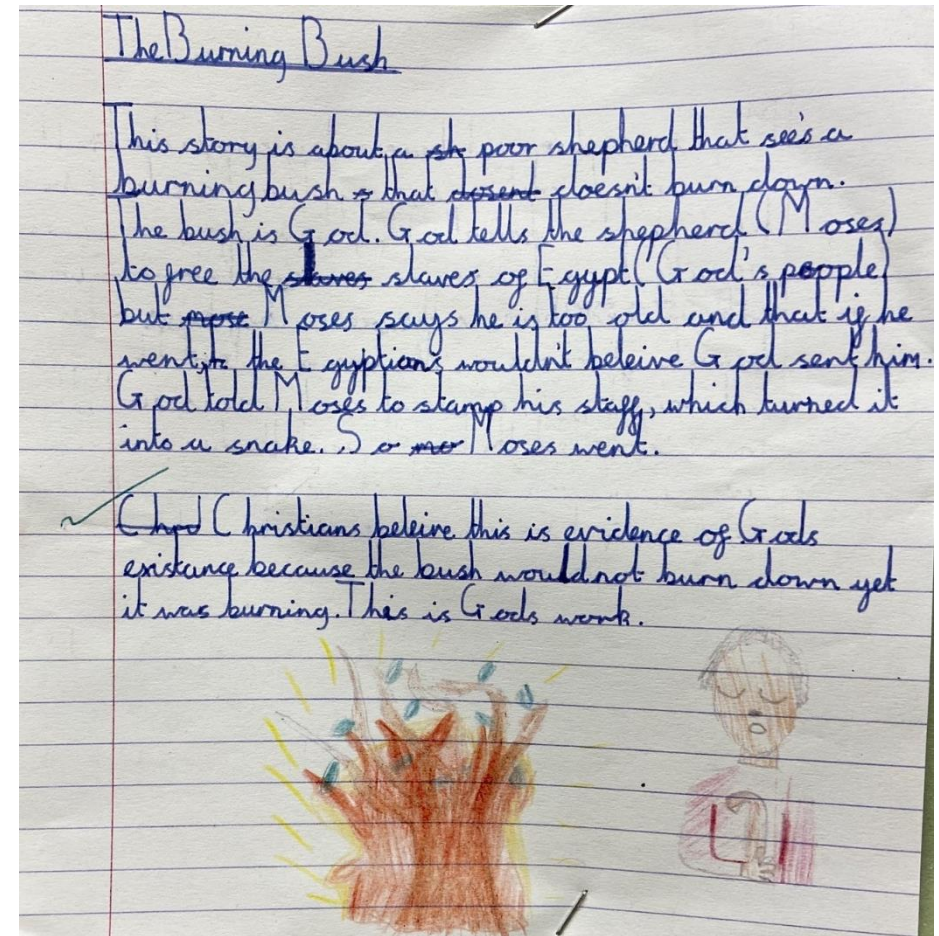 The Burning Bush
This story is about a sh poor shepherd that see's a
burning bush that dosent doesn't burn down.
The bush is God. God tells the shepherd (Moses)
to free the slaves slaves of Egypt (God's people)
but mose Moses says he is too old and that if he
went, the Egyptians wouldn't beleive God sent him.
God told Moses to stamp his staff, which turned it
into a snake. So mo Moses went.
Christians beleive this is evidence of Gods
existance because the bush would not burn down yet
it was burning. This is Gods work.